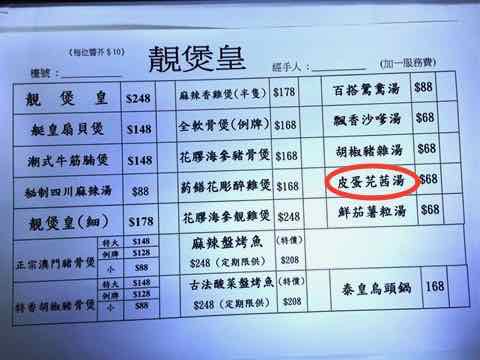 (每位醬芥$10)
靚煲皇
檯號：
經手人：
(加一服務費)
靚煲皇 $248
艇皇扇貝煲 $148
潮式牛筋腩煲 $148
秘制四川麻辣湯 $88
靚煲皇(細) $178
正宗澳門豬骨煲 特大 $148
例牌 $128
小 $88
特香胡椒豬骨煲 特大 $148
例牌 $128
小 $88
麻辣香雞煲(半隻) $178
全軟骨煲(例牌) $168
花膠海參豬骨煲 $168
药膳花彫醉雞煲 $168
花膠海參靚雞煲 $248
麻辣盤烤魚 (特價)
$248 (定期限供) $208
古法酸菜盤烤魚 (特價)
$248 (定期限供) $208
百搭鴛鴦湯 $88
飄香沙嗲湯 $68
胡椒豬雜湯 $68
皮蛋芫茜湯 $68
鮮茄薯粒湯 $68
泰皇烏頭鍋 168